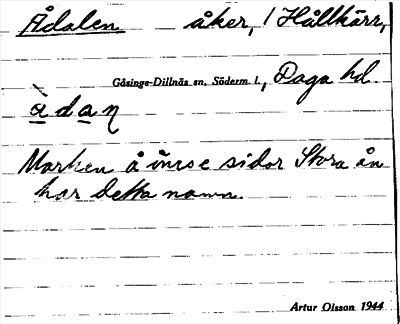 Ådalen åker, 1 Hållkärr,
Gåsinge-Dillnäs sn, Söderm. l., Daga hd
ὰdaη
Marken å ömse sidor Stora ån
har detta namn.
Artur Olsson 1944